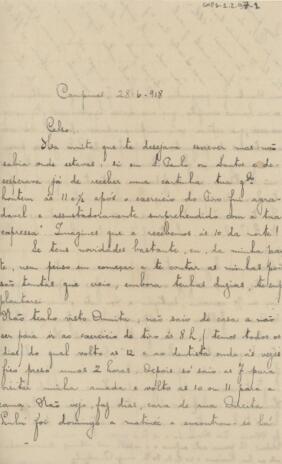 Campinas, 28-6-918
Celso.
Ha muito que te desejava escrever mas não
sabia onde estavas, si em S. Paulo ou Santos e de-
sesperava já de receber uma cartinha tua qdo
hontem ás 11 e ½ após o exercicio do Tiro fui agra-
davel e assustadoramente surprehendido com a tua
expressa! Imagines que a recebemos ás 10 da noite!
Se tens novidades bastante, eu, de minha par-
te, nem penso em começar a te contar as minhas pois
são tantas que creio, embora tenhas duzias, te sup-
plantarei.
Não tenho visto Annita, não saio de casa a não
ser para ir ao exercicio de tiro ás 8 h / temos todos os
dias / do qual volto ás 12 e ao dentista onde ás vezes
fico preso umas 2 horas. Depois só saio ás 7 para
visitar minha amada e volto ás 10 ou 11 para a
cama. Não vejo, faz dias, cara de uma
fui domingo a matinée e encontrou-se lá